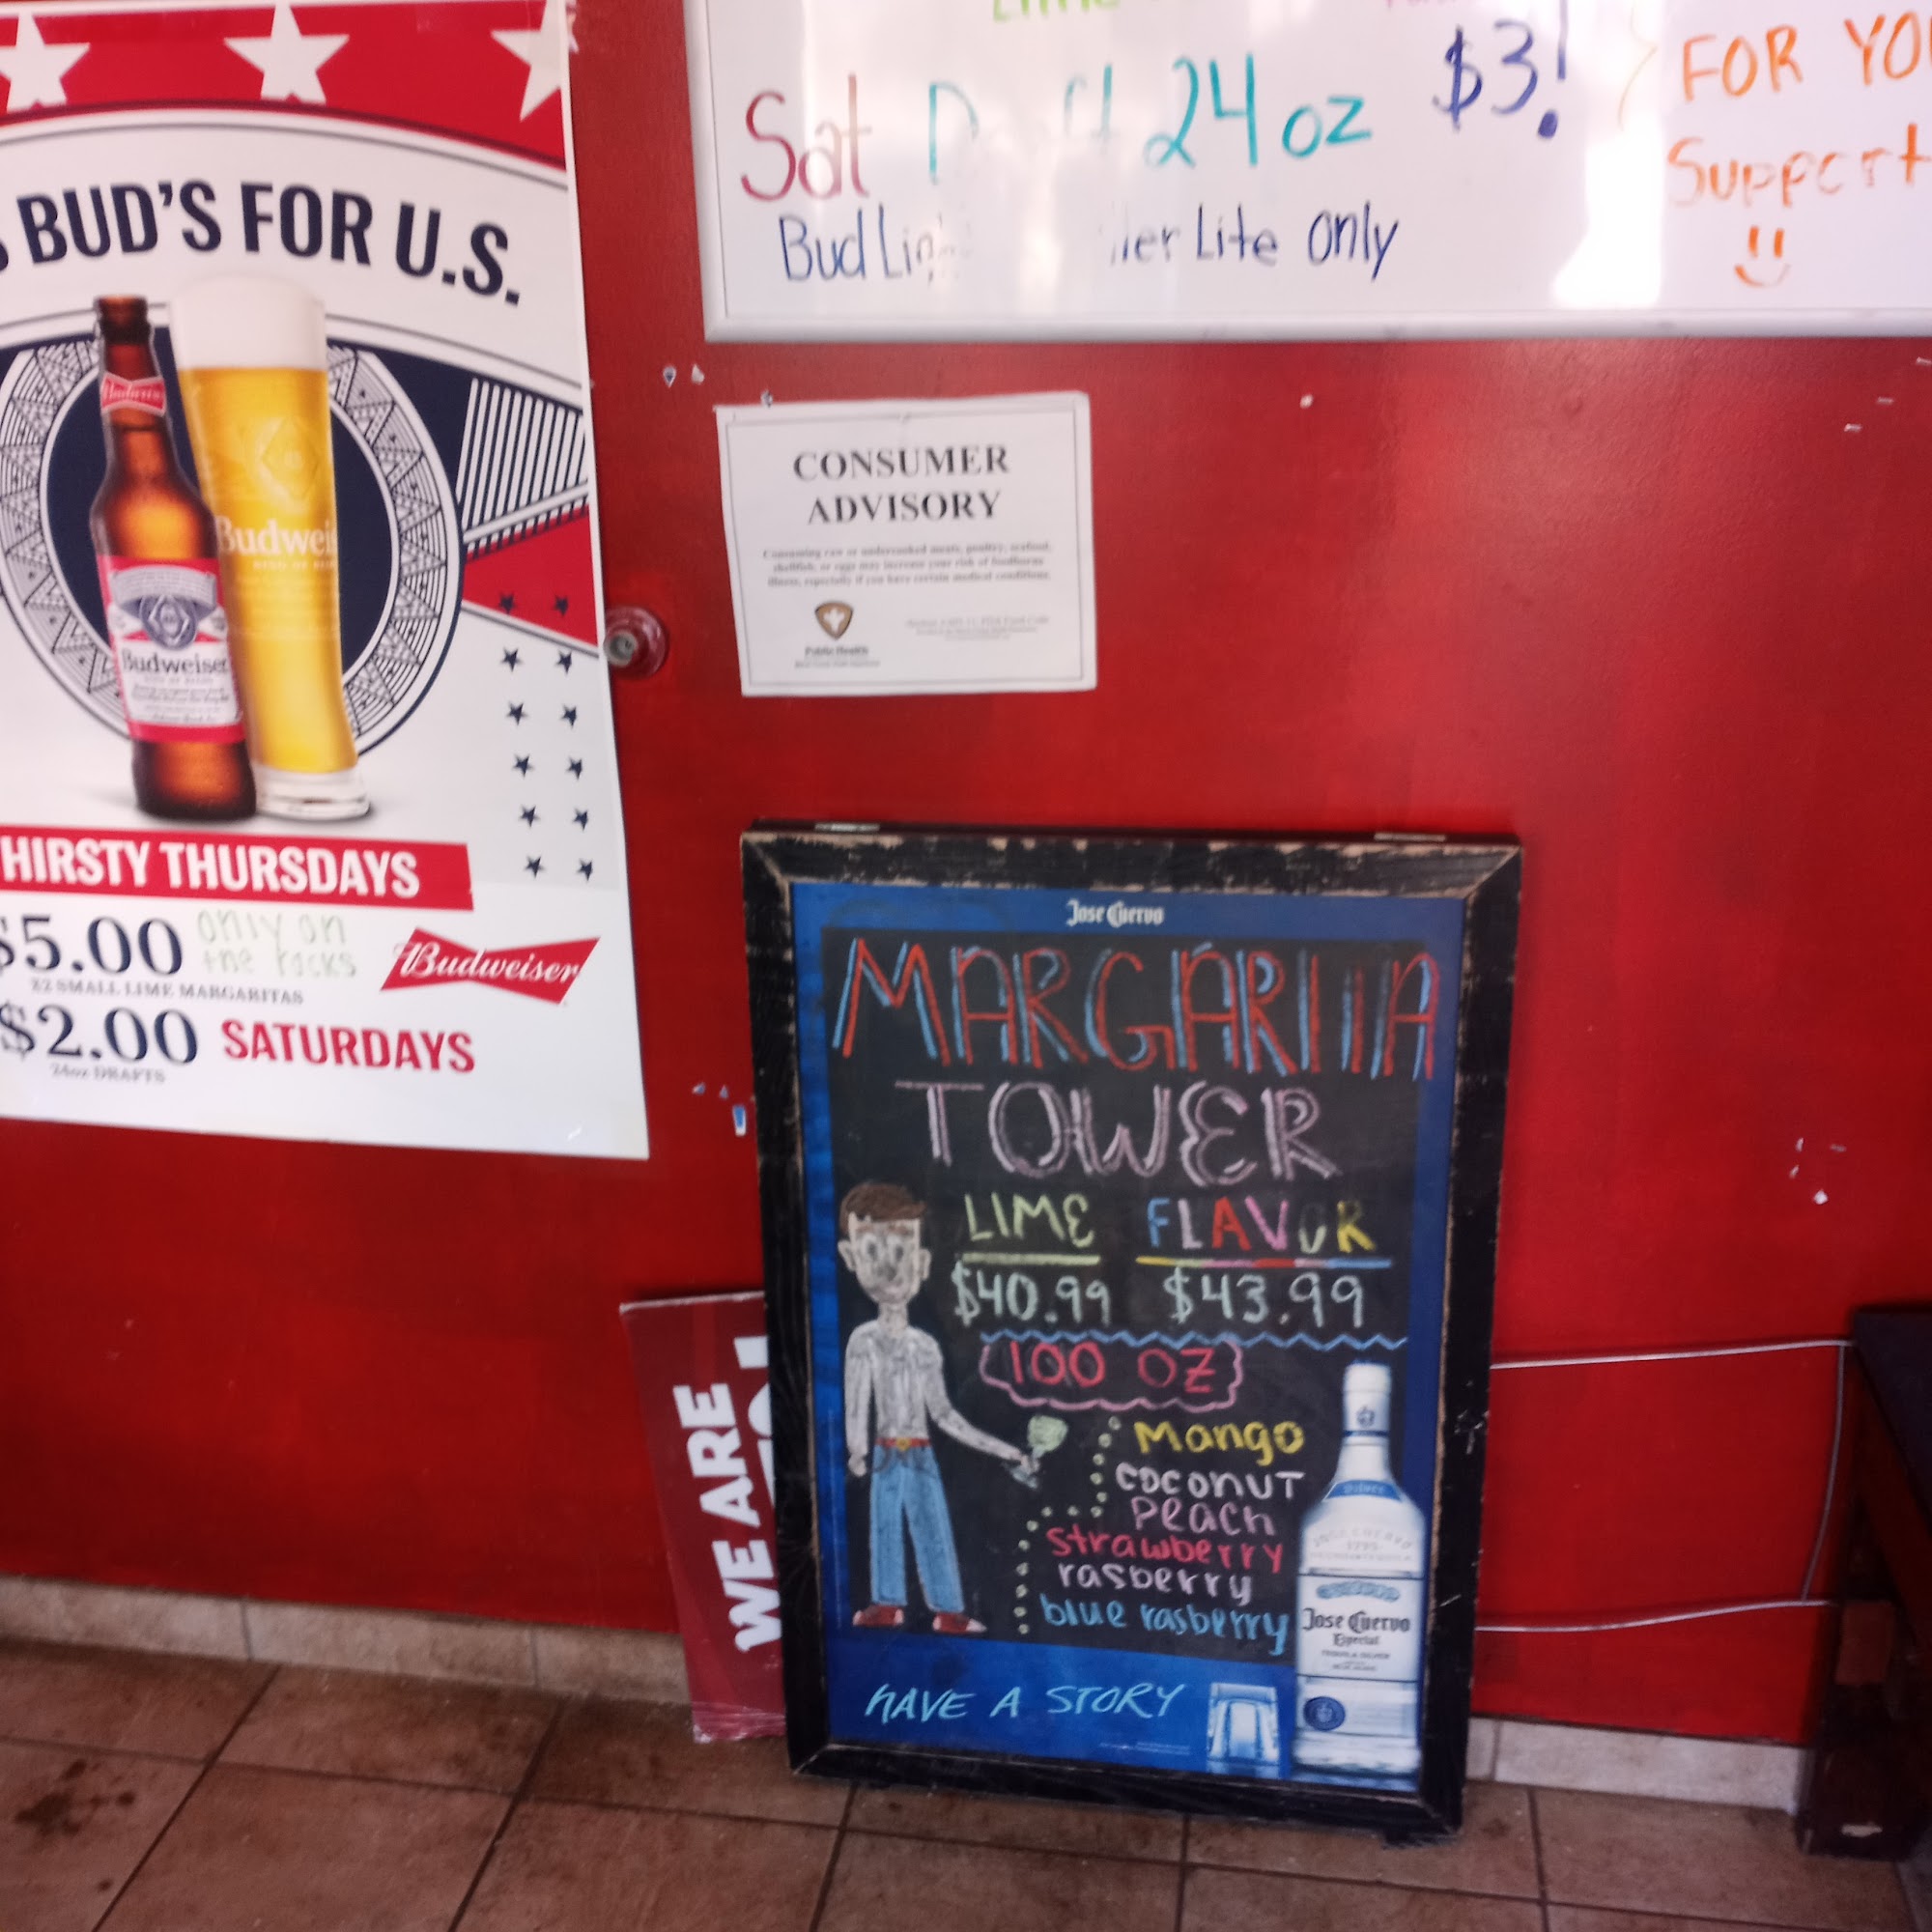 BUD'S FOR U.S.
Budweiser
KING OF BEERS
Budweiser
HIRSTY THURSDAYS
$5.00 only on
the rocks
22 SMALL LIME MARGARITAS
Budweiser
$2.00 SATURDAYS
24oz DRAFTS
Sat 24 oz $3!
Bud Lite only
FOR
Support
CONSUMER
ADVISORY
Consuming raw or undercooked meats, poultry, seafood,
shellfish, or eggs may increase your risk of foodborne
illness, especially if you have certain medical conditions.
Public Health
WE ARE
Jose Cuervo
MARGARITA
TOWER
LIME FLAVOR
$40.99 $43.99
100 OZ
Mango
coconut
Peach
strawberry
rasberry
blue rasberry
Jose Cuervo
Especial
HAVE A STORY